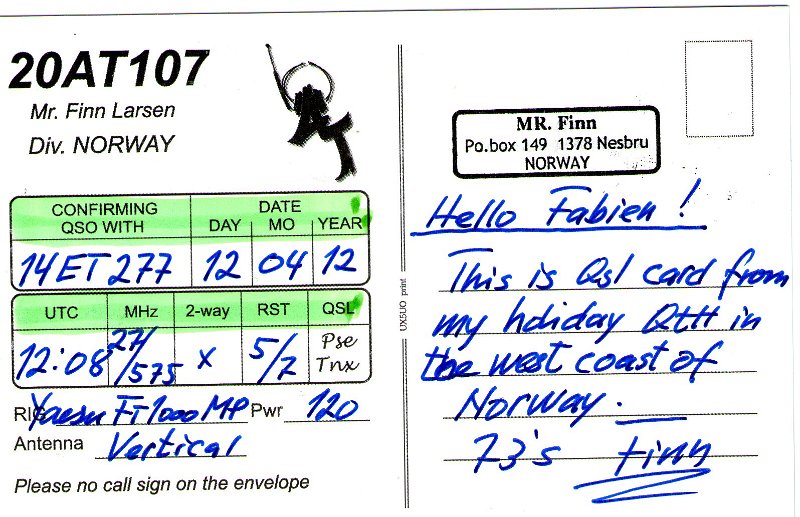 20AT107
Mr. Finn Larsen
Div. NORWAY
AT
CONFIRMING QSO WITH DATE DAY MO YEAR
14ET277 12 04 12
UTC MHz 2-way RST QSL
12:08 27/575 x 5/7 Pse Tnx
RIG Yaesu FT1000MP Pwr 120
Antenna Vertical
Please no call sign on the envelope
UX5UO print
MR. Finn
Po.box 149 1378 Nesbru
NORWAY
Hello Fabien!
This is Qsl card from
my holiday QTH in
the west coast of
Norway.
73's Finn